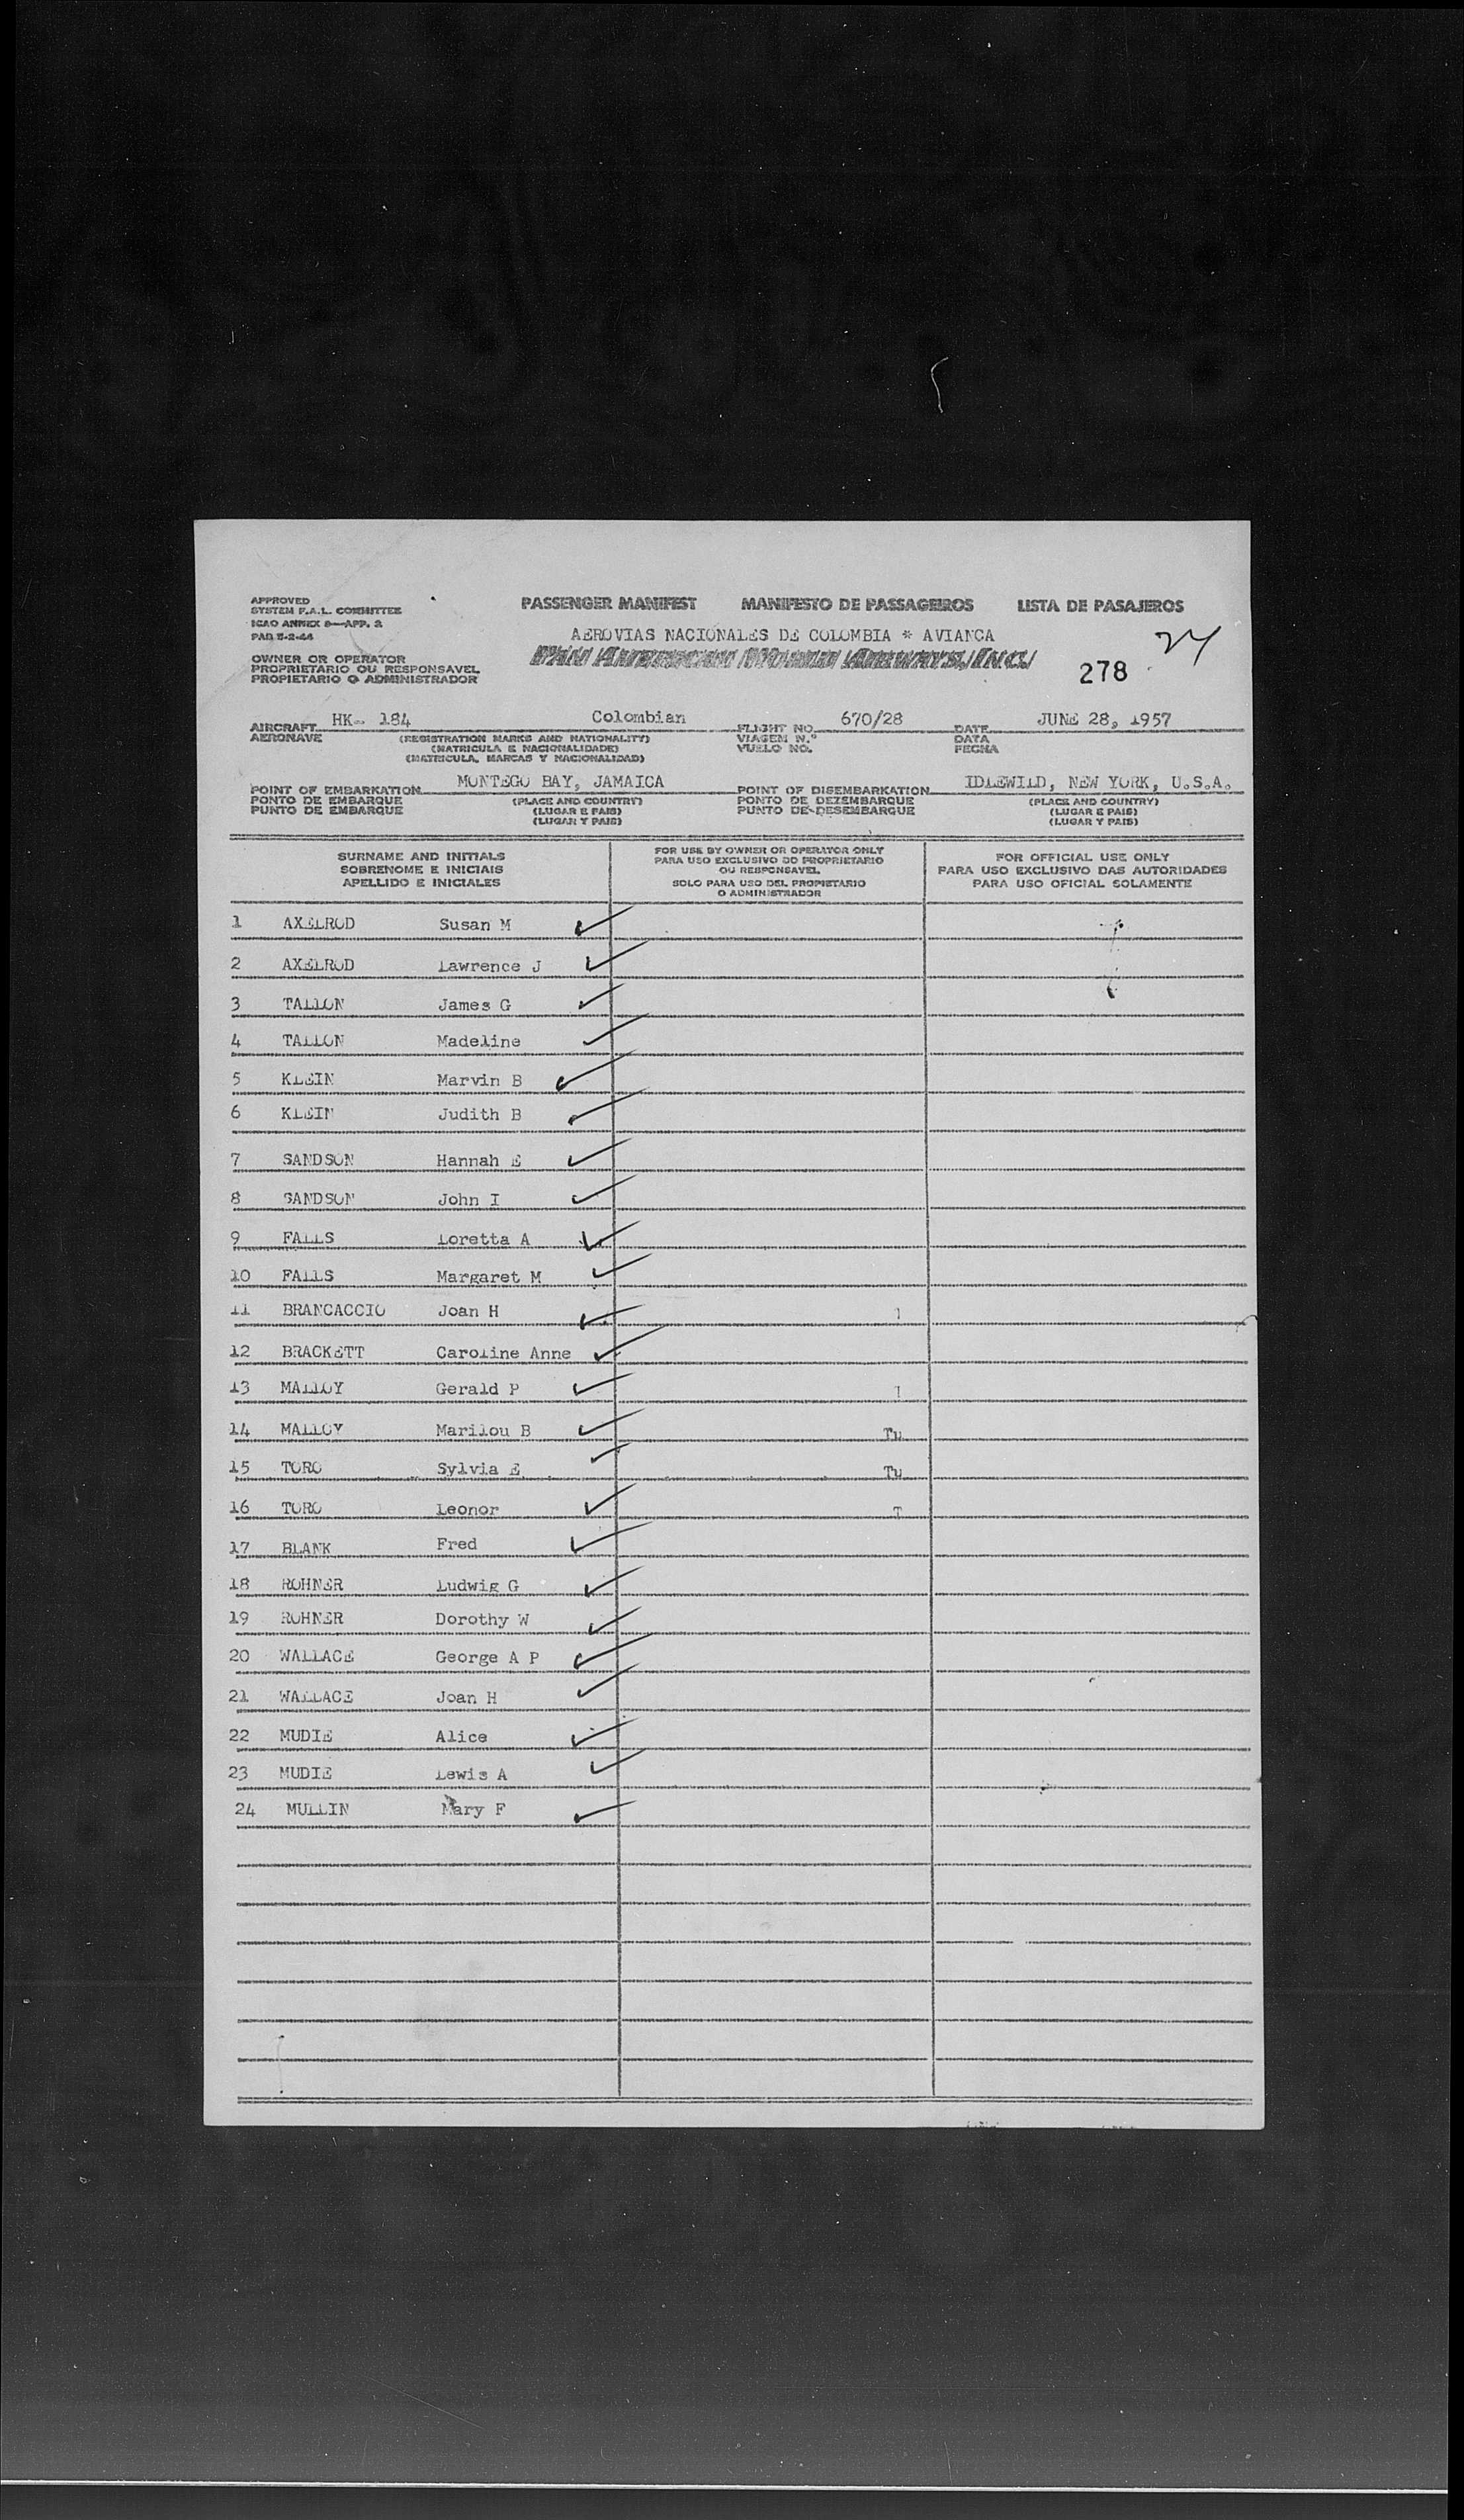 APPROVED
SYSTEM F.A.L. COMMITTEE
ICAO ANNEX 9—APP. 3
PAB 5-2-44
PASSENGER MANIFEST MANIFESTO DE PASSAGEIROS LISTA DE PASAJEROS
AEROVIAS NACIONALES DE COLOMBIA * AVIANCA
PAN AMERICAN WORLD AIRWAYS, INC.
24
278
OWNER OR OPERATOR
PROPRIETARIO OU RESPONSAVEL
PROPIETARIO O ADMINISTRADOR
AIRCRAFT HK- 184 Colombian FLIGHT NO. 670/28 DATE JUNE 28, 1957
AERONAVE (REGISTRATION MARKS AND NATIONALITY) VIAGEM N.º DATA
(MATRICULA E NACIONALIDADE) VUELO NO. FECHA
(MATRICULA, MARCAS Y NACIONALIDAD)
POINT OF EMBARKATION MONTEGO BAY, JAMAICA POINT OF DISEMBARKATION IDLEWILD, NEW YORK, U.S.A.
PONTO DE EMBARQUE (PLACE AND COUNTRY) PONTO DE DEZEMBARQUE (PLACE AND COUNTRY)
PUNTO DE EMBARQUE (LUGAR E PAIS) PUNTO DE DESEMBARQUE (LUGAR E PAIS)
(LUGAR Y PAIS) (LUGAR Y PAIS)
SURNAME AND INITIALS
SOBRENOME E INICIAIS
APELLIDO E INICIALES
FOR USE BY OWNER OR OPERATOR ONLY
PARA USO EXCLUSIVO DO PROPRIETARIO
OU RESPONSAVEL
SOLO PARA USO DEL PROPIETARIO
O ADMINISTRADOR
FOR OFFICIAL USE ONLY
PARA USO EXCLUSIVO DAS AUTORIDADES
PARA USO OFICIAL SOLAMENTE
1 AXELROD Susan M
2 AXELROD Lawrence J
3 TALLON James G
4 TALLON Madeline
5 KLEIN Marvin B
6 KLEIN Judith B
7 SANDSON Hannah E
8 SANDSON John I
9 FALLS Loretta A
10 FALLS Margaret M
11 BRANCACCIO Joan H
12 BRACKETT Caroline Anne
13 MALLOY Gerald P
14 MALLOY Marilou B Tu
15 TORO Sylvia E Tu
16 TORO Leonor T
17 BLANK Fred
18 ROHNER Ludwig G
19 ROHNER Dorothy W
20 WALLACE George A P
21 WALLACE Joan H
22 MUDIE Alice
23 MUDIE Lewis A
24 MULLIN Mary F